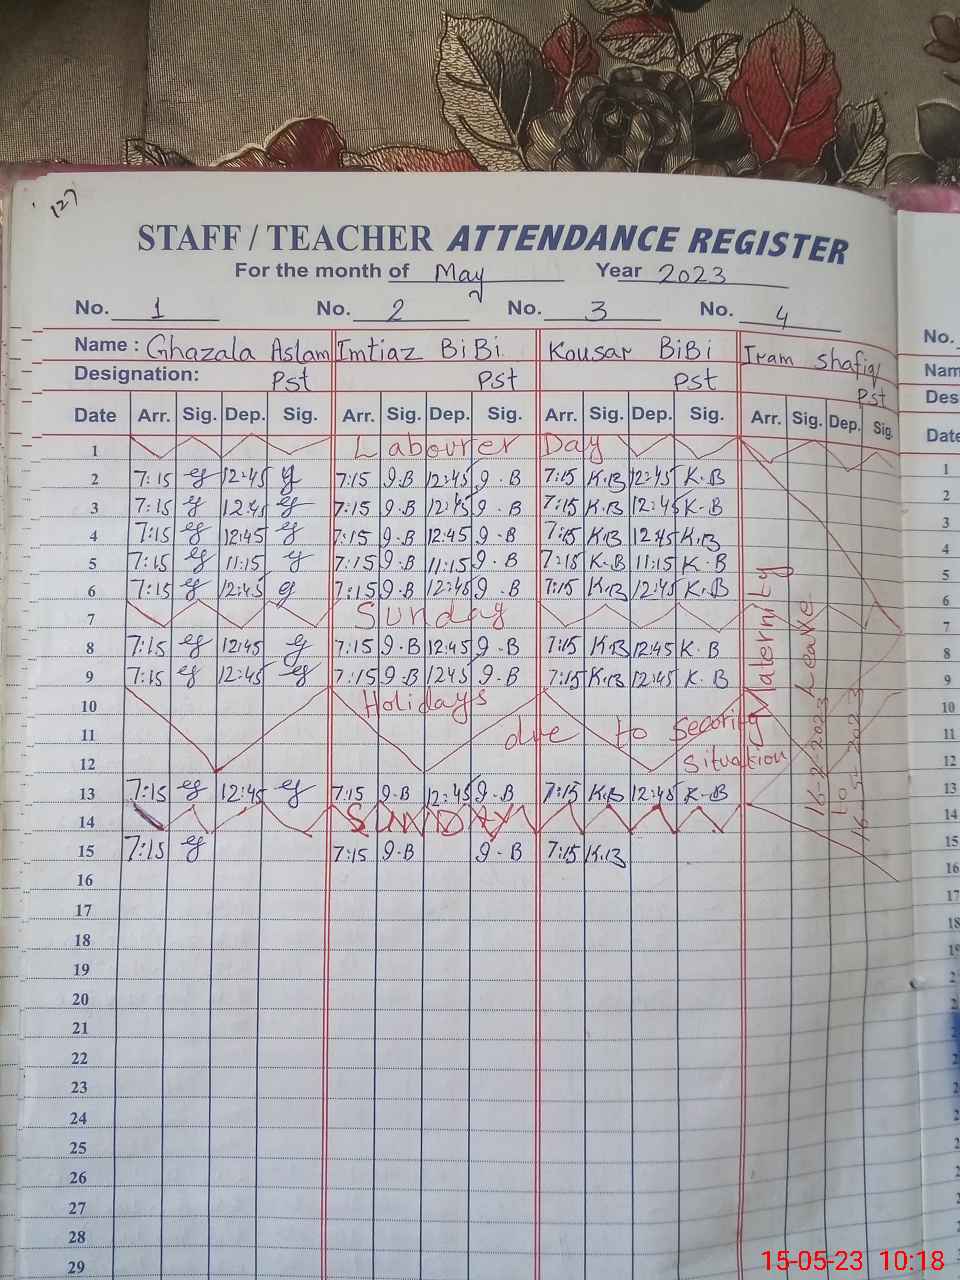 127
STAFF / TEACHER ATTENDANCE REGISTER
For the month of May Year 2023
No. 1 No. 2 No. 3 No. 4 No.
Name : Ghazala Aslam Imtiaz BiBi Kousar BiBi Iram Shafiq Nam
Designation: Pst Pst Pst Pst Des
Date Arr. Sig. Dep. Sig. Arr. Sig. Dep. Sig. Arr. Sig. Dep. Sig. Arr. Sig. Dep. Sig. Date
1 Labourer Day 1
2 7:15 12:45 7:15 I.B 12:45 I.B 7:15 K.B 12:45 K.B 2
3 7:15 12:45 7:15 I.B 12:45 I.B 7:15 K.B 12:45 K.B 3
4 7:15 12:45 7:15 I.B 12:45 I.B 7:15 K.B 12:45 K.B 4
5 7:15 11:15 7:15 I.B 11:15 I.B 7:15 K.B 11:15 K.B 5
6 7:15 12:45 7:15 I.B 12:45 I.B 7:15 K.B 12:45 K.B 6
7 Sunday 7
8 7:15 12:45 7:15 I.B 12:45 I.B 7:15 K.B 12:45 K.B 8
9 7:15 12:45 7:15 I.B 1245 I.B 7:15 K.B 12:45 K.B 9
10 Holidays 10
11 due to security 11
12 situation 12
13 7:15 12:45 7:15 I.B 12:45 I.B 7:15 K.B 12:45 K.B 13
14 SUNDAY 14
15 7:15 7:15 I.B I.B 7:15 K.B 15
Maternity
Leave
16-2-2023
to
16-5-2023
16 16
17 17
18 18
19 19
20
21
22
23
24
25
26
27
28
29
15-05-23 10:18